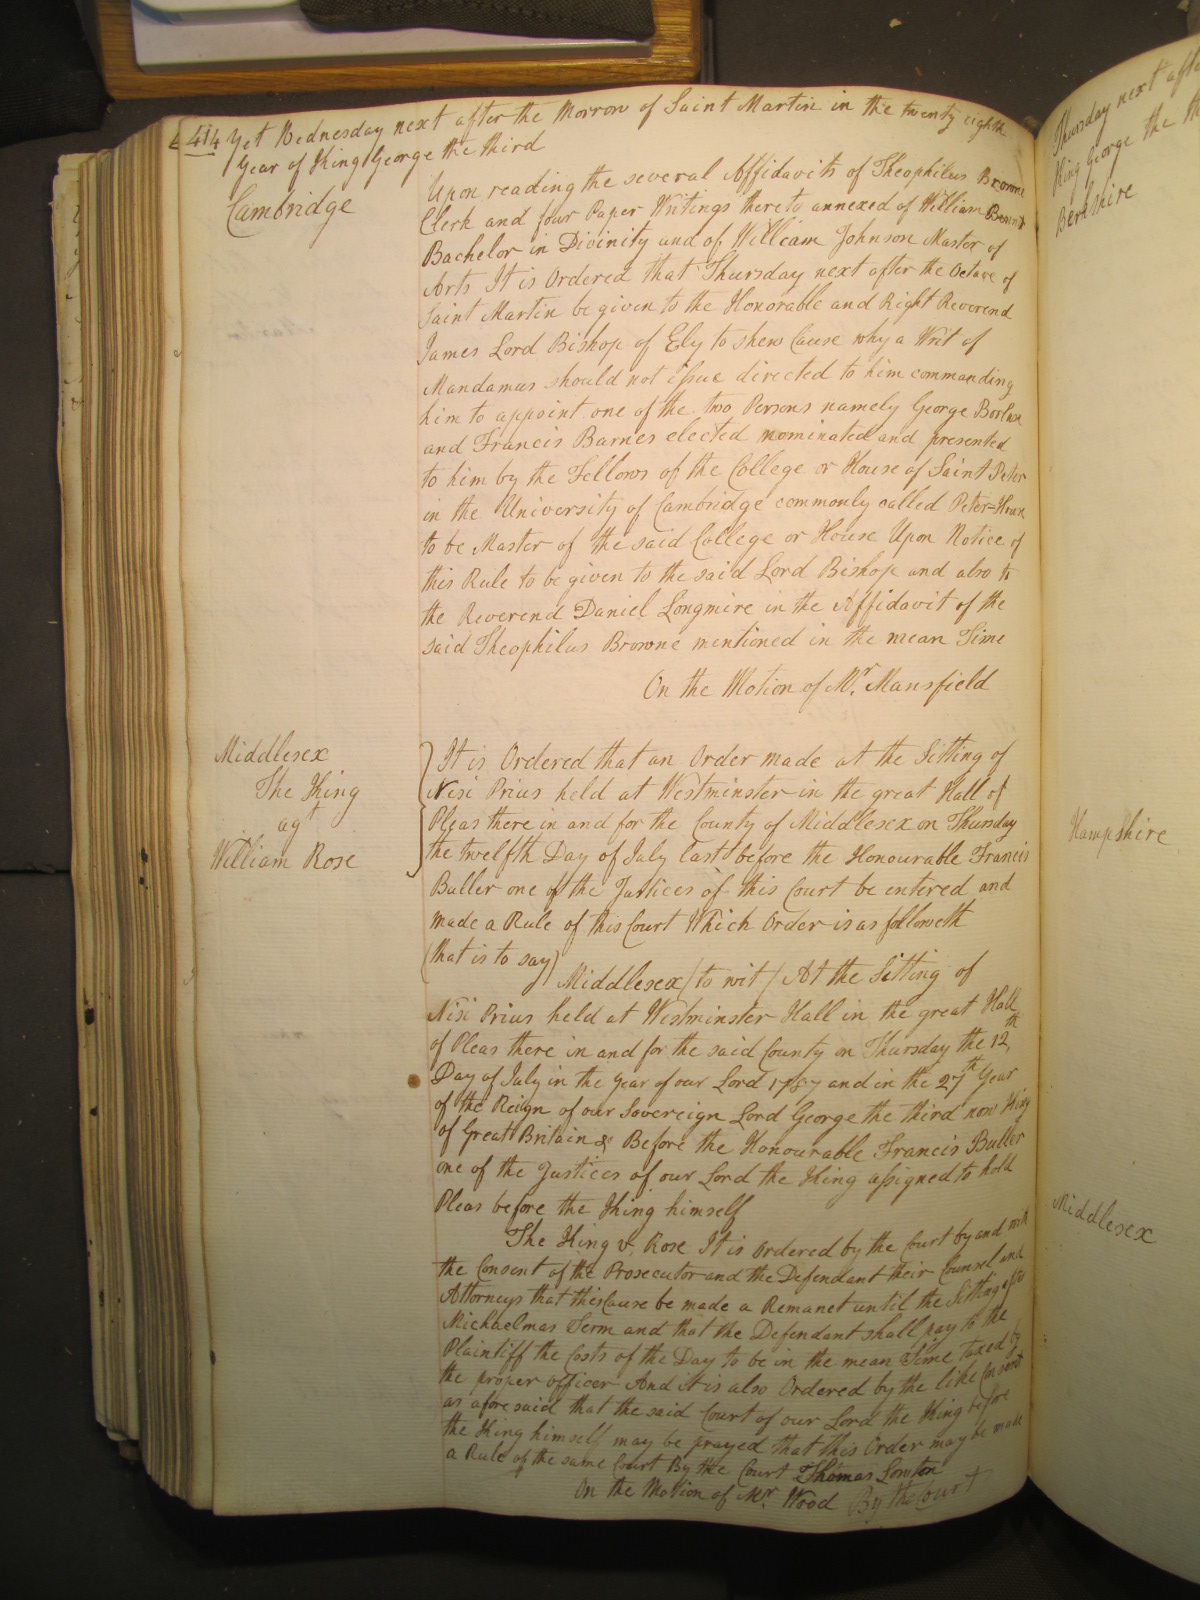 414 Yet Wednesday next after the Morrow of Saint Martin in the twenty eighth
Year of King George the third
Cambridge
Upon reading the several Affidavits of Theophilus Browne
Clerk and four Paper Writings thereto annexed of William
Bachelor in Divinity and of William Johnson Master of
Arts It is Ordered that Thursday next after the Octave of
Saint Martin be given to the Honorable and Right Reverend
James Lord Bishop of Ely to shew Cause why a Writ of
Mandamus should not issue directed to him commanding
him to appoint one of the two Persons namely George Borlase
and Francis Barnes elected nominated and presented
to him by the Fellows of the College or House of Saint Peter
in the University of Cambridge commonly called Peter-House
to be Master of the said College or House Upon Notice of
this Rule to be given to the said Lord Bishop and also to
the Reverend Daniel Longmire in the Affidavit of the
said Theophilus Browne mentioned in the mean Time
On the Motion of Mr. Mansfield
Middlesex
The King
agt
William Rose
It is Ordered that an Order made at the Sitting of
Nisi Prius held at Westminster in the great Hall of
Pleas there in and for the County of Middlesex on Thursday
the twelfth Day of July last before the Honourable Francis
Buller one of the Justices of this Court be entered and
made a Rule of this Court Which Order is as followeth
(that is to say) Middlesex (to wit) At the Sitting of
Nisi Prius held at Westminster Hall in the great Hall
of Pleas there in and for the said County on Thursday the 12th
Day of July in the Year of our Lord 1787 and in the 27th Year
of the Reign of our Sovereign Lord George the third now King
of Great Britain &c Before the Honourable Francis Buller
one of the Justices of our Lord the King assigned to hold
Pleas before the King himself
The King v. Rose It is Ordered by the Court by and with
the Consent of the Prosecutor and the Defendant their Counsel and
Attorneys that this Cause be made a Remanet until the Sitting after
Michaelmas Term and that the Defendant shall pay to the
Plaintiff the Costs of the Day to be in the mean Time taxed by
the proper officer And it is also Ordered by the like Consent
as aforesaid that the said Court of our Lord the King before
the King himself may be prayed that this Order may be made
a Rule of the same Court By the Court Thomas Lowton
On the Motion of Mr. Wood By the Court
Thursday next after
King George the th
Berkshire
Hampshire
Middlesex